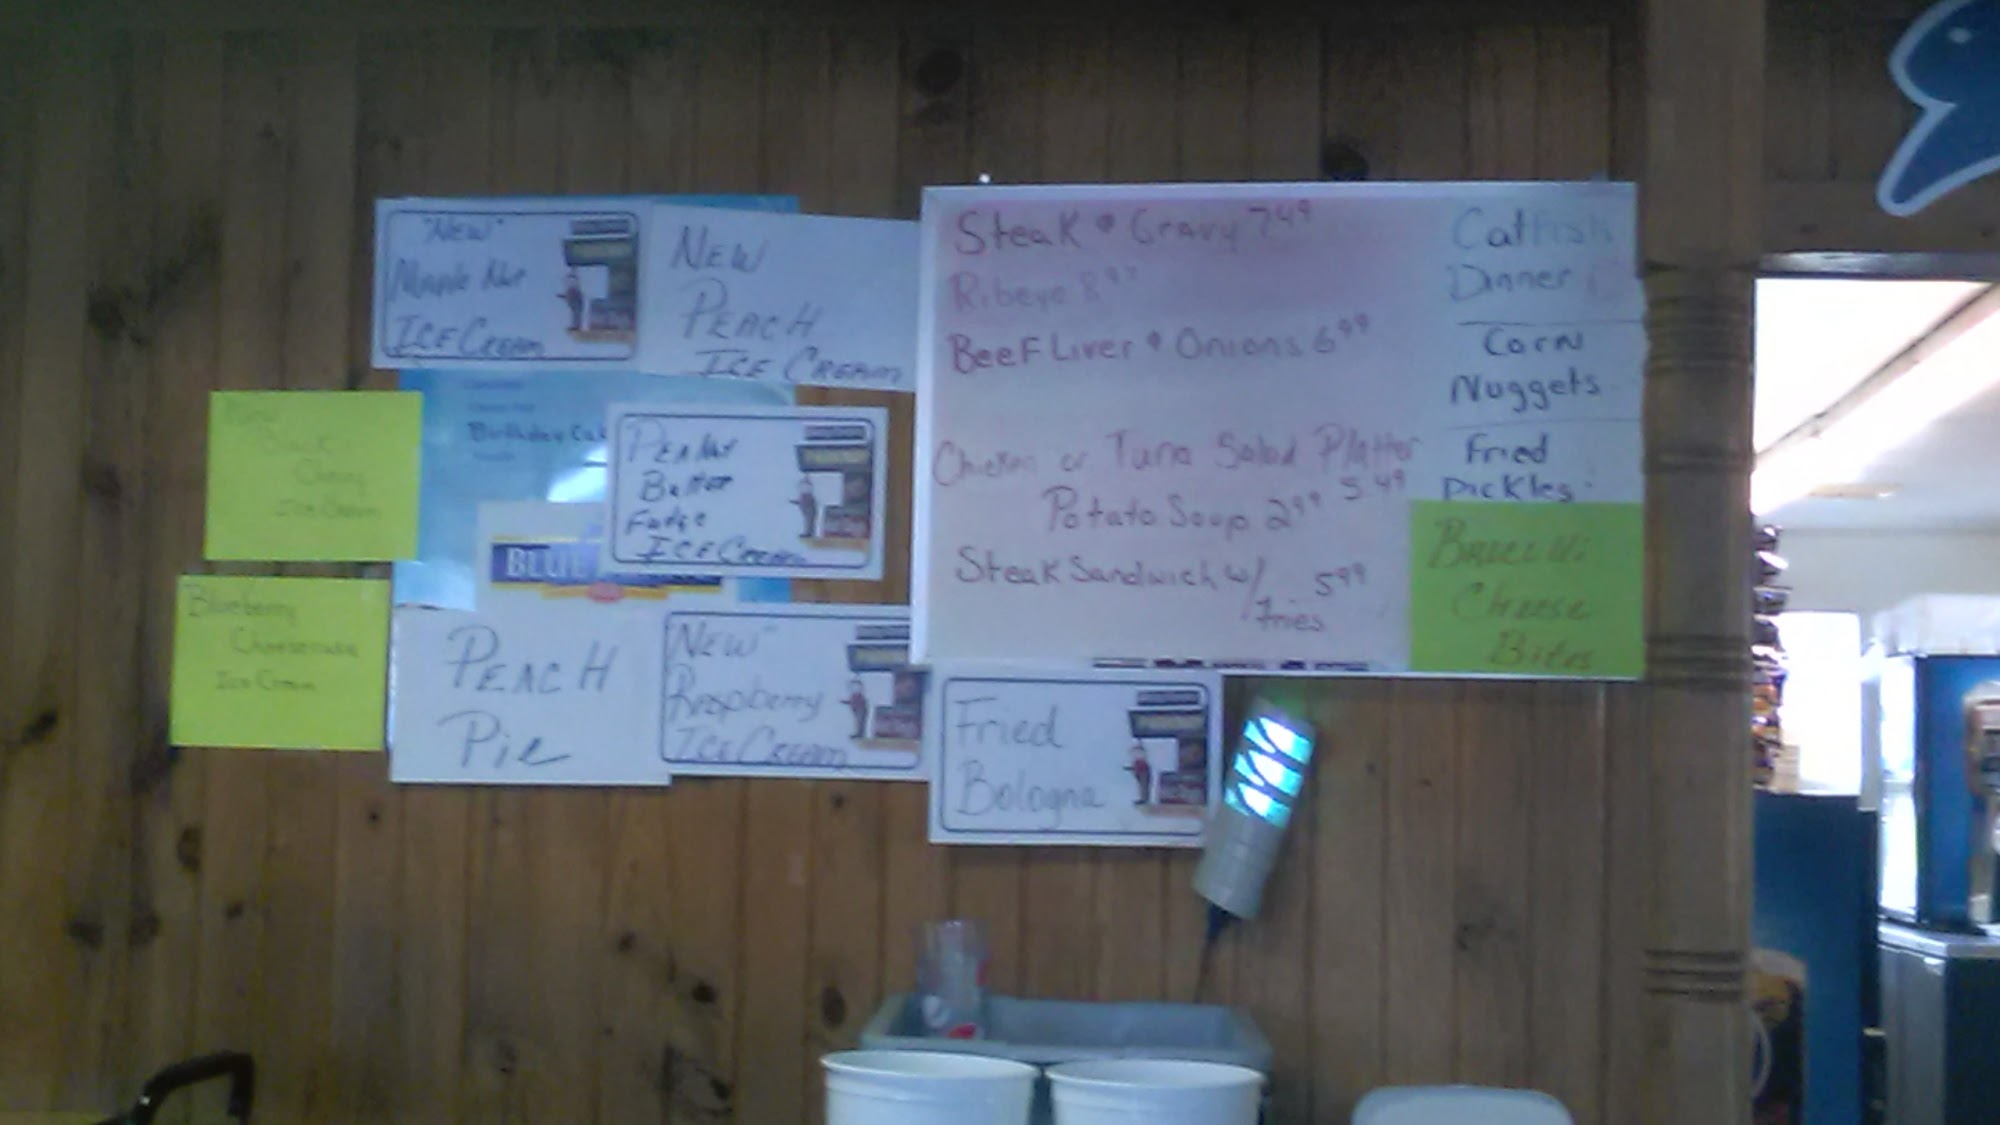 "NEW"
Maple Nut
ICE CREAM
NEW
PEACH
ICE CREAM
Black
Cherry
Ice Cream
Birthday Cak
PEANUT
Butter
Fudge
ICE CREAM
BLUE
Blueberry
Cheesecake
Ice Cream
PEACH
Pie
NEW"
Raspberry
ICE CREAM
Steak & Gravy 7.49
Ribeye 8.99
Beef Liver & Onions 6.99
Chicken or Tuna Salad Platter
5.49
Potato Soup 2.99
Steak Sandwich w/ 5.99
Fries
Catfish
Dinner
Corn
Nuggets
Fried
Pickles
Broccoli
Cheese
Bites
Fried
Bologna